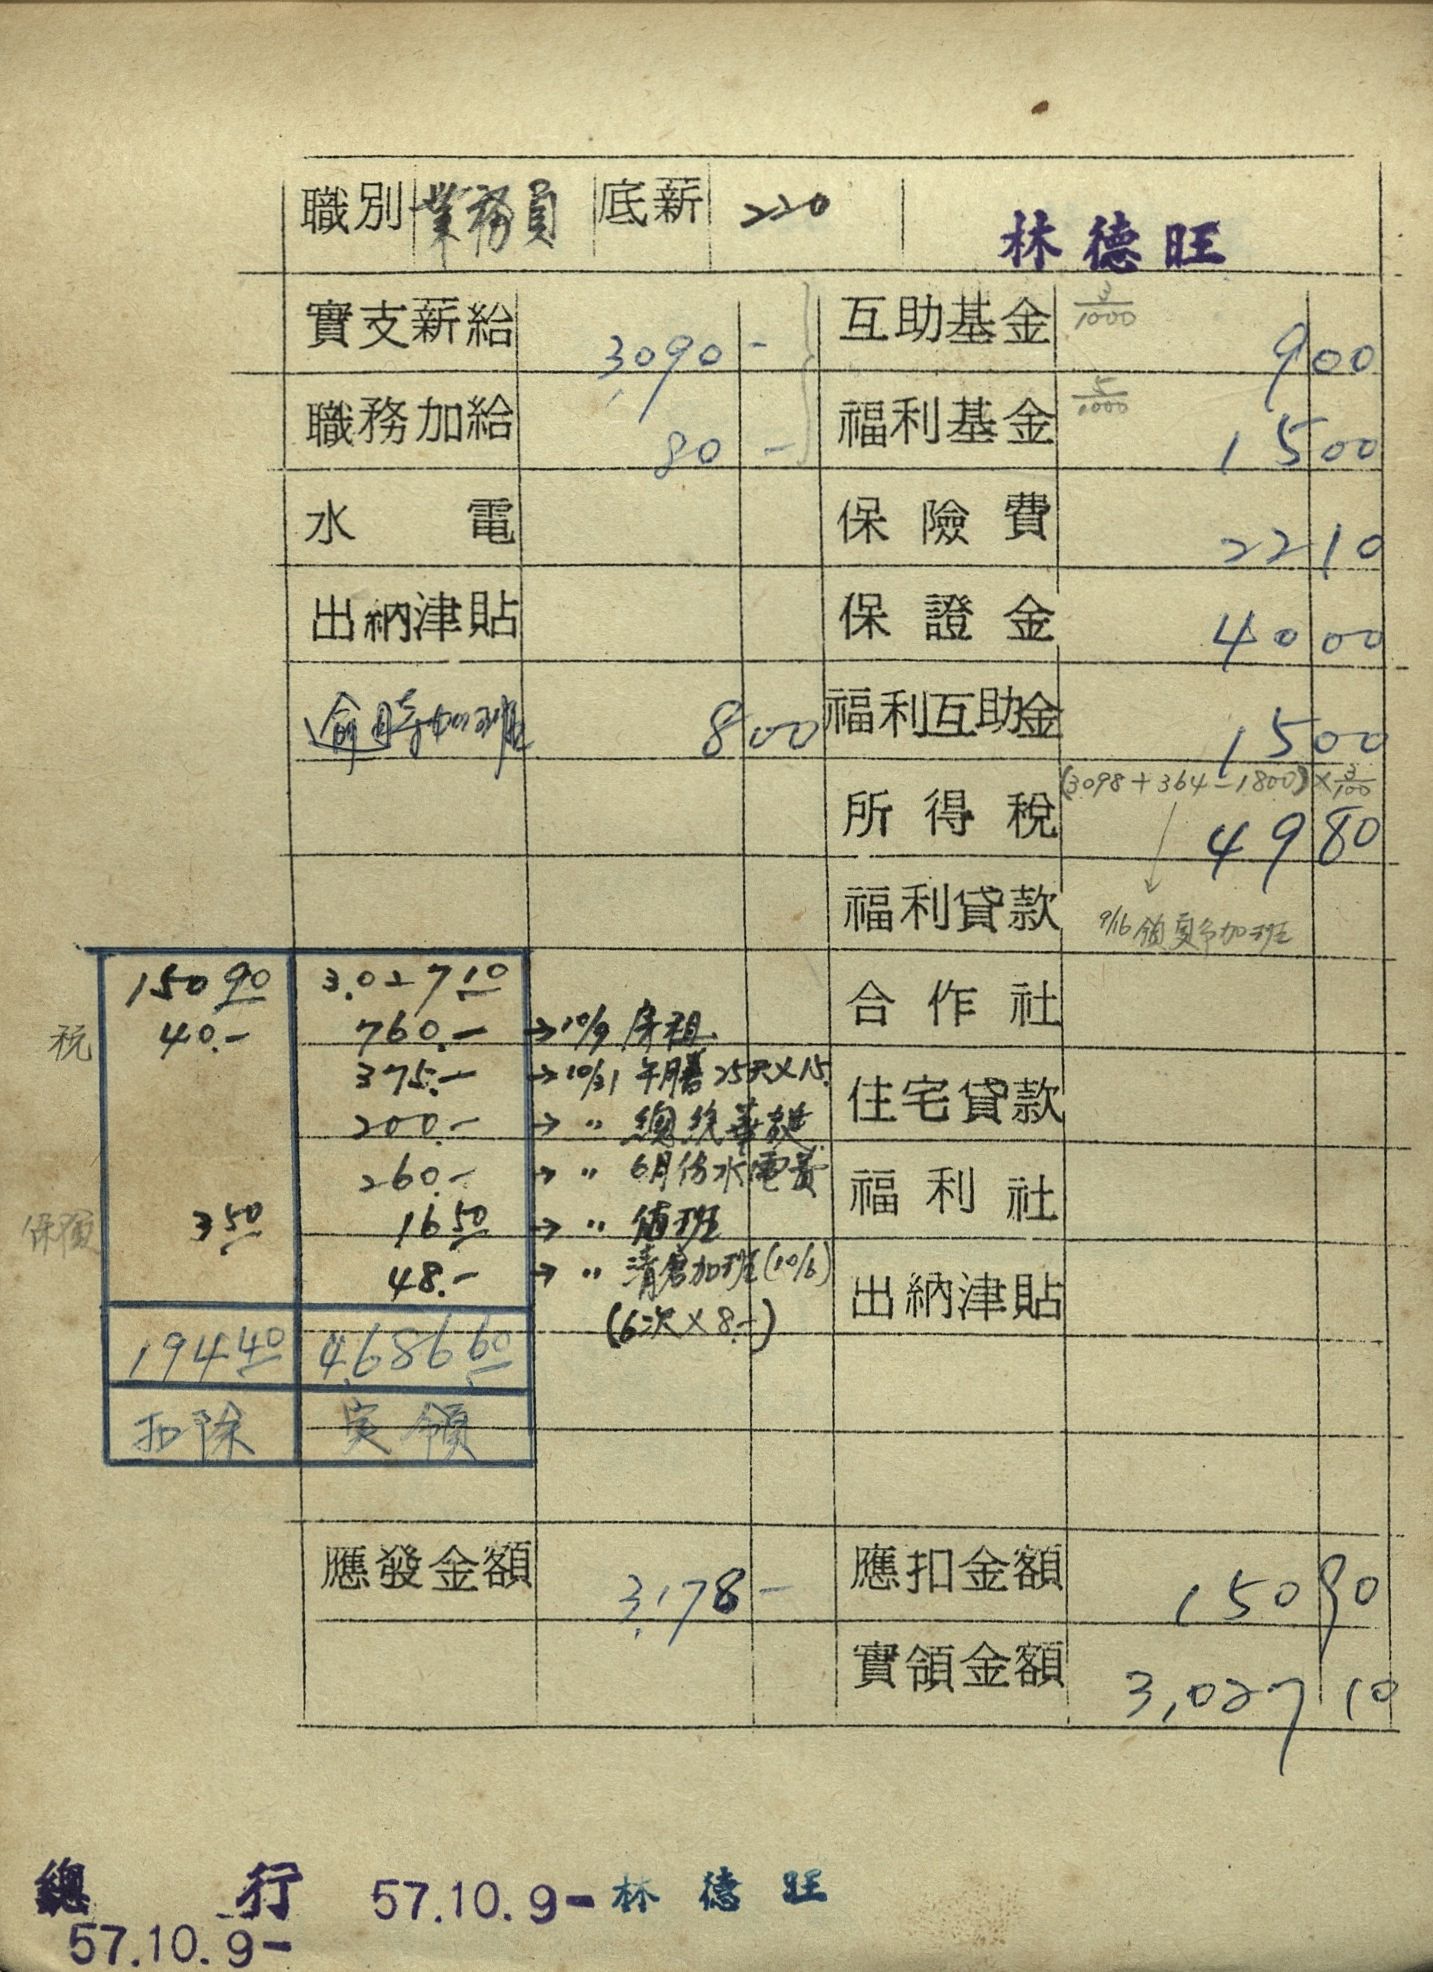 職別 業務員 底薪 220 林德旺
實支薪給 3090 - 互助基金 3/1000 9 00
職務加給 80 - 福利基金 5/1000 15 00
水電 保險費 22 10
出納津貼 保證金 40 00
逾時加班 8 00 福利互助金 15 00
(3098+364-1800)×3/100
所得稅 49 80
福利貸款 9/16領 加班
150 90 3.027 10 合作社
稅 40.- 760.- →10/9 房租
375.- →10/31 午膳25天×15. 住宅貸款
200.- → 〃 總統華誕
260.- → 〃 6月份水電費 福利社
保險 3 50 16 50 → 〃 值班
48.- → 〃 清倉加班(10/6) 出納津貼
(6次×8.-)
194 40 4.686 60
扣除 実領
應發金額 3,178 - 應扣金額 150 90
實領金額 3,027 10
總行 57.10.9- 林德旺
57.10.9-